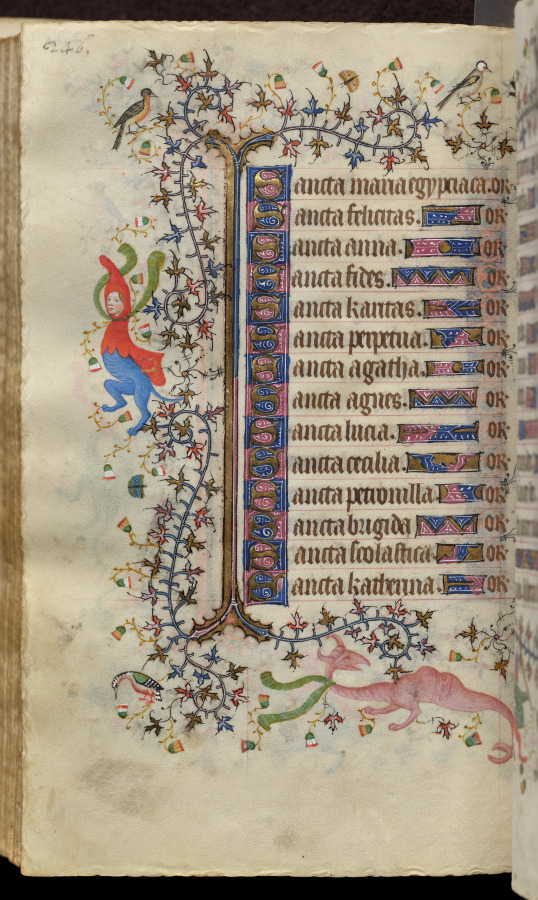 246.
Sancta maria egypciaca. or
Sancta felicitas. or
Sancta anna. or
Sancta fides. or
Sancta karitas. or
Sancta perpetua. or
Sancta agatha. or
Sancta agnes. or
Sancta lucia. or
Sancta cecilia. or
Sancta petronilla. or
Sancta brigida or
Sancta scolastica. or
Sancta katherina. or